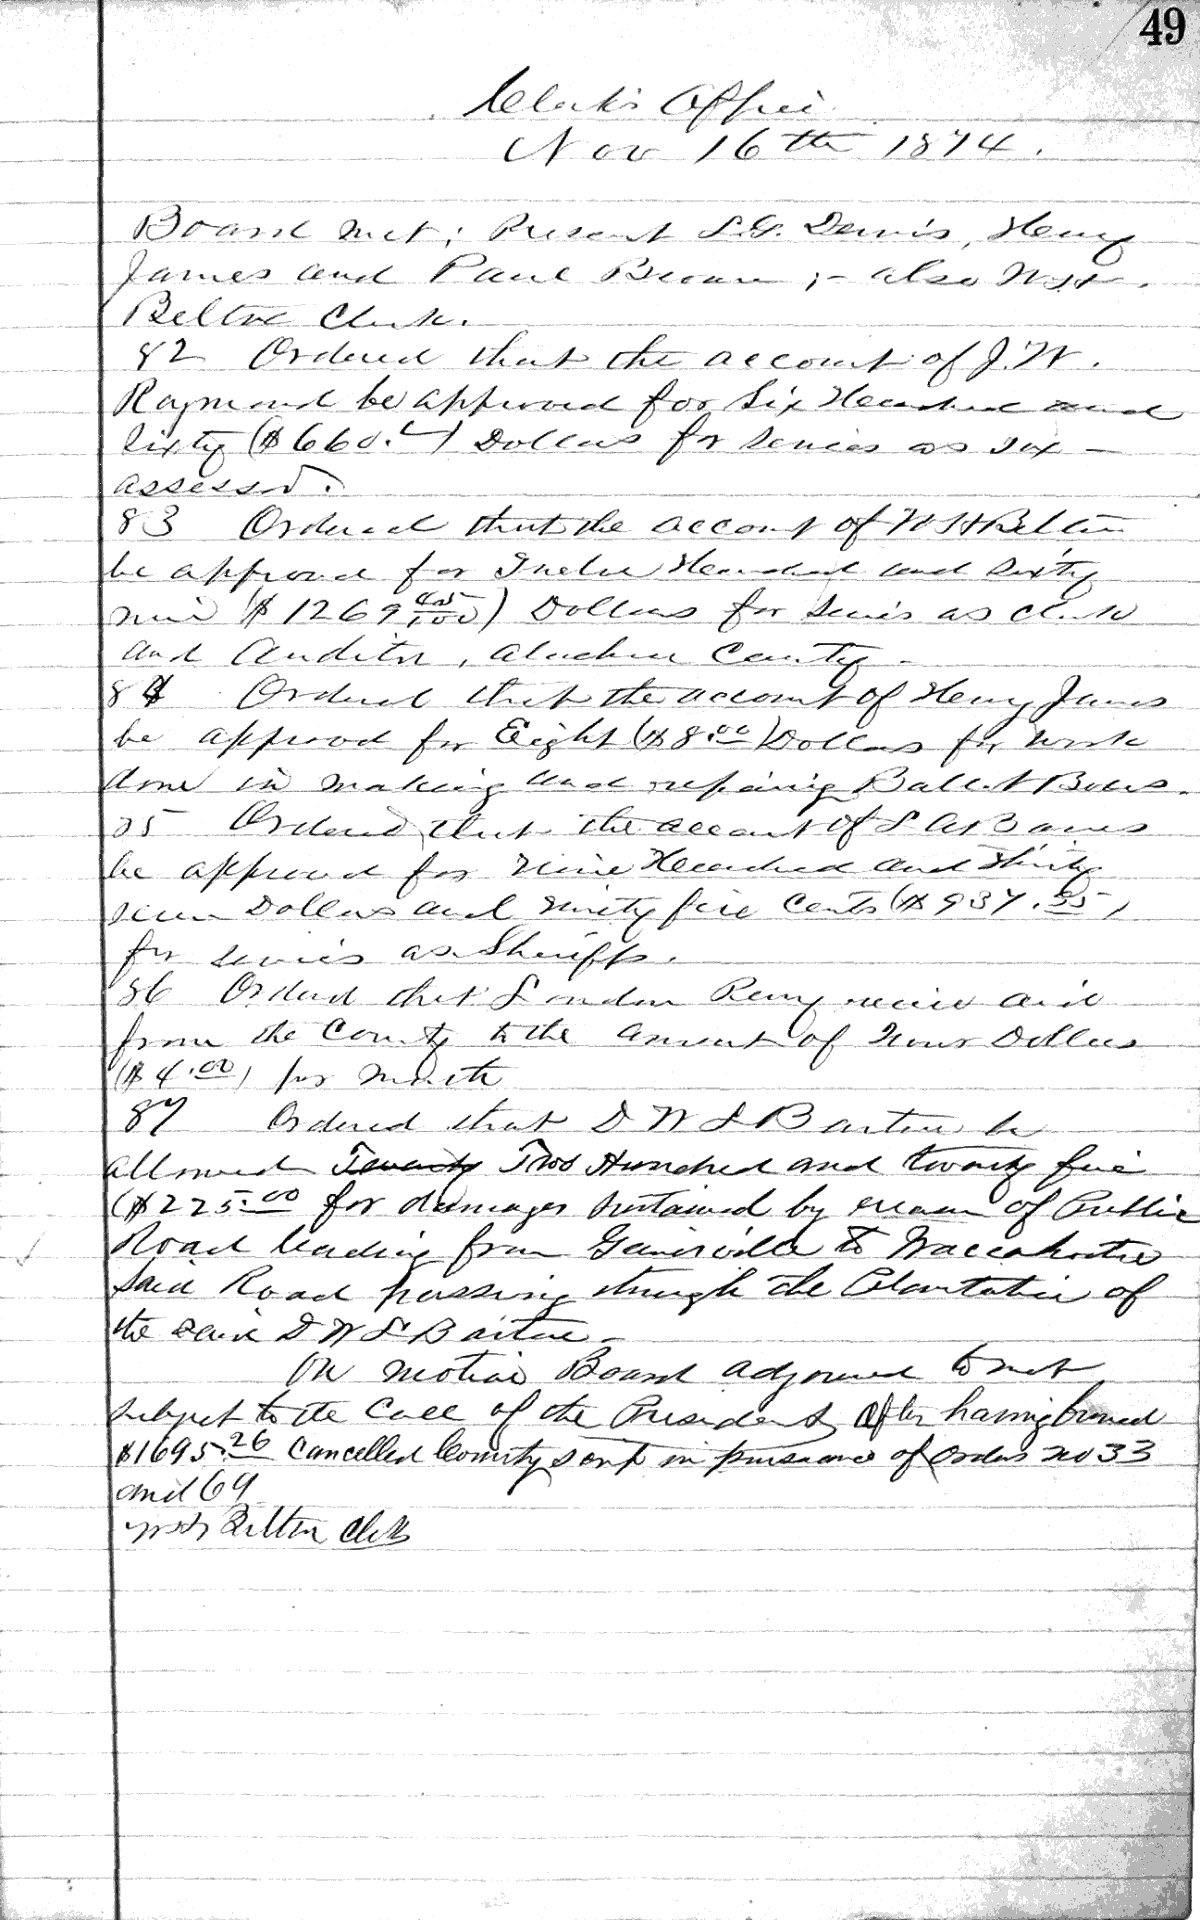 49
Clerk's Office
Nov 16th 1874.
Board met; Present L.G. Dennis, Henry
James and Paul Brown ;- also W.H.
Belton Clerk.
82 Ordered that the account of J.W.
Raymond be approved for Six Hundred and
Sixty ($660.) Dollars for services as tax -
assessor.
83 Ordered that the account of W H Belton
be approved for Twelve Hundred and Sixty
nine ($1269 45/100) Dollars for services as Clerk
and Auditor, Alachua County -
84 Ordered that the account of Henry James
be approved for Eight ($8.00) Dollars for work
done in making and repairing Ballot Boxes.
85 Ordered that the account of L A Barnes
be approved for Nine Hundred and Thirty
seven Dollars and Ninety five Cents ($937.95)
for services as Sheriff.
86 Ordered that London Remy receive aid
from the County to the amount of Four Dollars
($4.00) per Month
87 Ordered that D W L Barton be
allowed Twenty Two Hundred and twenty five
($225.00 for damages sustained by reason of Public
Road leading from Gainesville to Waccahootie
Said Road passing through the Plantation of
the said D W L Barton -
On motion Board adjourned to meet
subject to the Call of the President, After having burned
$1695.26 Cancelled County Scrip in pursuance of Orders no 33
and 69
W H Belton Clk